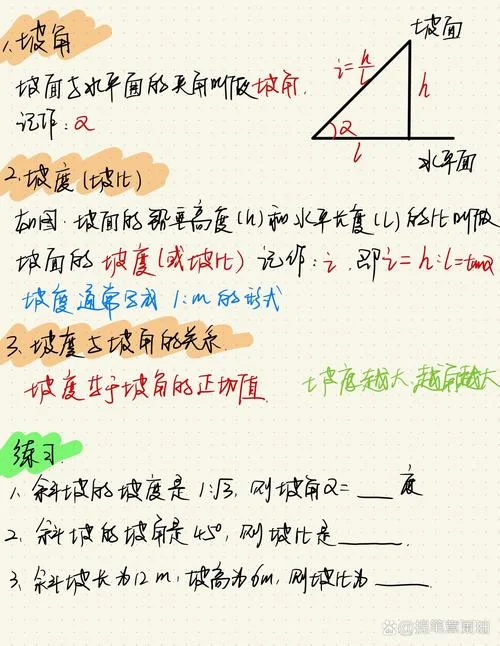 1.坡角
坡面
坡面与水平面的夹角叫做坡角.
i=h/l
h
记作:α
α
l
水平面
2.坡度(坡比)
如图.坡面的铅垂高度(h)和水平长度(l)的比叫做
坡面的坡度(或坡比) 记作:i.即i=h:l=tanα
坡度通常写成1:m的形式
3.坡度与坡角的关系.
坡度等于坡角的正切值.
坡度越大,越角越大
练习.
1.斜坡的坡度是1:√3,则坡角α=___度
2.斜坡的坡角是45°,则坡比是_____.
3.斜坡长为12m,坡高为6m,则坡比为_____.